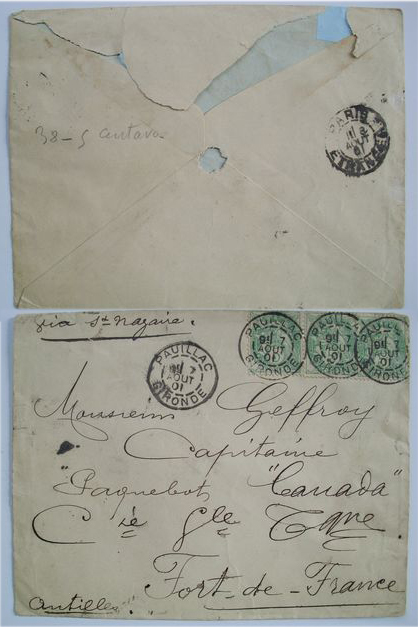 38 - 5 Centavo
PARIS
8
AOUT
01
ETRANGER
via St Nazaire.
PAUILLAC
7
AOUT
01
GIRONDE
PAUILLAC
7
AOUT
01
GIRONDE
PAUILLAC
7
AOUT
01
GIRONDE
PAUILLAC
7
AOUT
01
GIRONDE
Monsieur Geffroy
Capitaine
"Paquebot "Canada"
Cie Gle Tque
Fort-de-France
Antilles